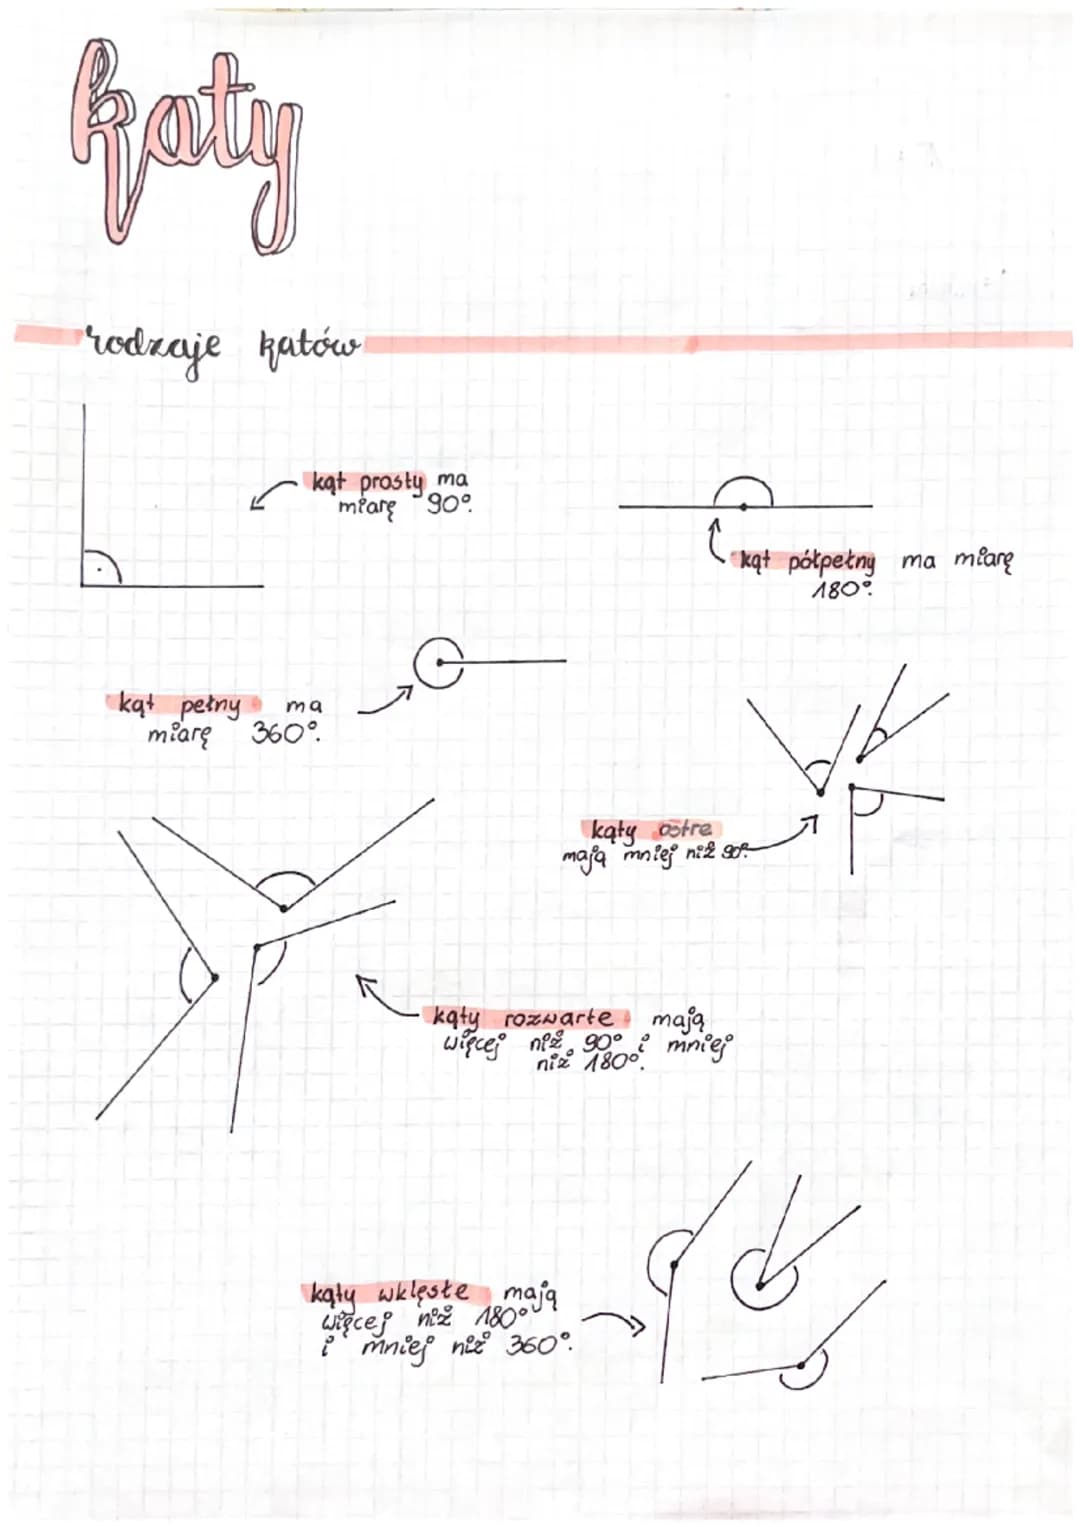 kąty
rodzaje kątów
kąt prosty ma
miarę 90°.
kąt półpełny ma miarę
180°.
kąt pełny ma
miarę 360°.
kąty ostre
mają mniej niż 90°.
kąty rozwarte mają
więcej niż 90° i mniej
niż 180°.
kąty wklęsłe mają
więcej niż 180°
i mniej niż 360°.